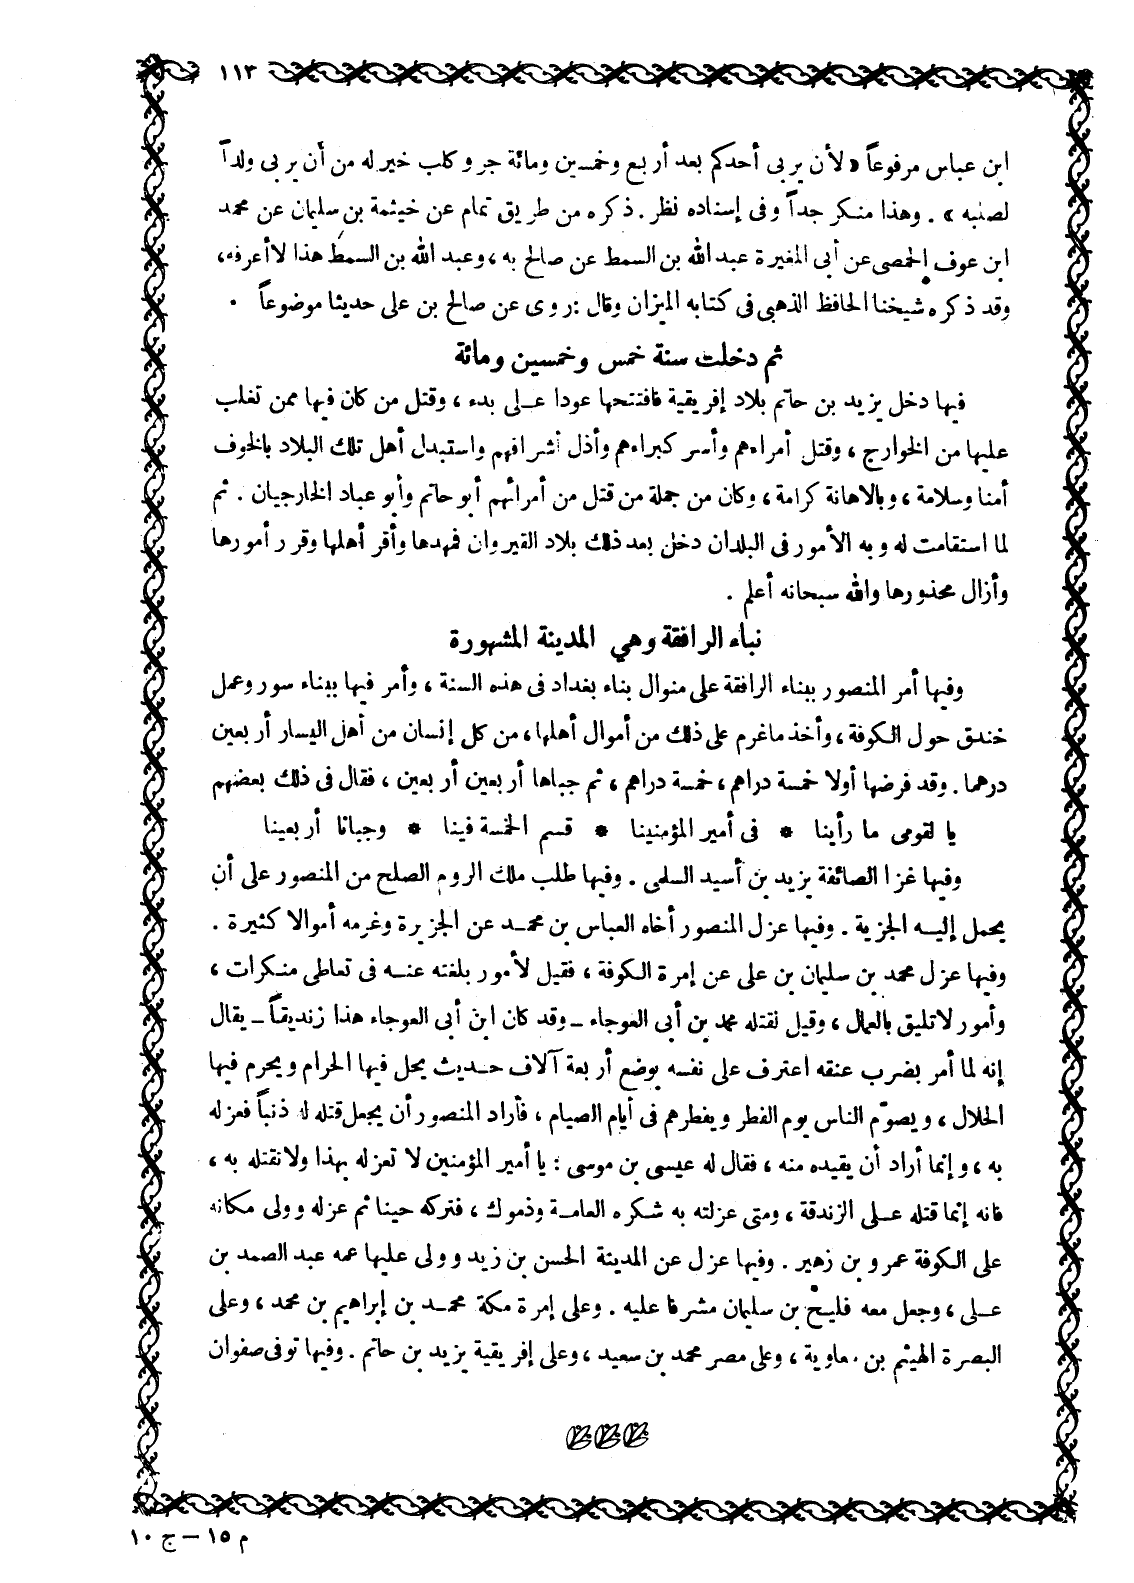 ١١٣
ابن عباس مرفوعاً « لأن يربى أحدكم بعد أربع وخمسين ومائة جرو كلب خير له من أن يربى ولداً
لصلبه » . وهذا منكر جداً وفى إسناده نظر . ذكره من طريق تمام عن خيثمة بن سليمان عن محمد
ابن عوف الحمصى عن أبى المغيرة عبد الله بن السمط عن صالح به ، وعبد الله بن السمط هذا لا أعرفه ،
وقد ذكره شيخنا الحافظ الذهبى فى كتابه الميزان وقال : روى عن صالح بن على حديثا موضوعاً .
ثم دخلت سنة خمس وخمسين ومائة
فيها دخل يزيد بن حاتم بلاد إفريقية فافتتحها عودا على بدء ، وقتل من كان فيها ممن تغلب
عليها من الخوارج ، وقتل أمراءهم وأسر كبراءهم وأذل أشرافهم واستبدل أهل تلك البلاد بالخوف
أمنا وسلامة ، وبالاهانة كرامة ، وكان من جملة من قتل من أمرائهم أبو حاتم وأبو عباد الخارجيان . ثم
لما استقامت له وبه الأمور فى البلدان دخل بعد ذلك بلاد القيروان فمهدها وأقر أهلها وقرر أمورها
وأزال محذورها والله سبحانه أعلم .
نباء الرافقة وهي المدينة المشهورة
وفيها أمر المنصور ببناء الرافقة على منوال بناء بغداد فى هذه السنة ، وأمر فيها ببناء سور وعمل
خندق حول الكوفة ، وأخذ ما غرم على ذلك من أموال أهلها ، من كل إنسان من أهل اليسار أربعين
درهما . وقد فرضها أولا خمسة دراهم ، خمسة دراهم ، ثم جباها أربعين أربعين ، فقال فى ذلك بعضهم
يا لقومى ما رأينا * فى أمير المؤمنينا * قسم الخمسة فينا * وجبانا أربعينا
وفيها غزا الصائفة يزيد بن أسيد السلمى . وفيها طلب ملك الروم الصلح من المنصور على أن
يحمل إليه الجزية . وفيها عزل المنصور أخاه العباس بن محمد عن الجزيرة وغرمه أموالا كثيرة .
وفيها عزل محمد بن سليمان بن على عن إمرة الكوفة ، فقيل لأمور بلغته عنه فى تعاطى منكرات ،
وأمور لا تليق بالعمال ، وقيل لقتله محمد بن أبى العوجاء – وقد كان ابن أبى العوجاء هذا زنديقاً – يقال
إنه لما أمر بضرب عنقه اعترف على نفسه بوضع أربعة آلاف حديث يحل فيها الحرام ويحرم فيها
الحلال ، ويصوّم الناس يوم الفطر ويفطرهم فى أيام الصيام ، فأراد المنصور أن يجعل قتله له ذنباً فعزله
به ، وإنما أراد أن يقيده منه ، فقال له عيسى بن موسى : يا أمير المؤمنين لا تعزله بهذا ولا تقتله به ،
فانه إنما قتله على الزندقة ، ومتى عزلته به شكره العامة وذموك ، فتركه حينا ثم عزله وولى مكانه
على الكوفة عمرو بن زهير . وفيها عزل عن المدينة الحسن بن زيد وولى عليها عمه عبد الصمد بن
على ، وجعل معه فليح بن سليمان مشرفا عليه . وعلى إمرة مكة محمد بن إبراهيم بن محمد ، وعلى
البصرة الهيثم بن معاوية ، وعلى مصر محمد بن سعيد ، وعلى إفريقية يزيد بن حاتم . وفيها توفى صفوان
م ١٥ – ج ١٠